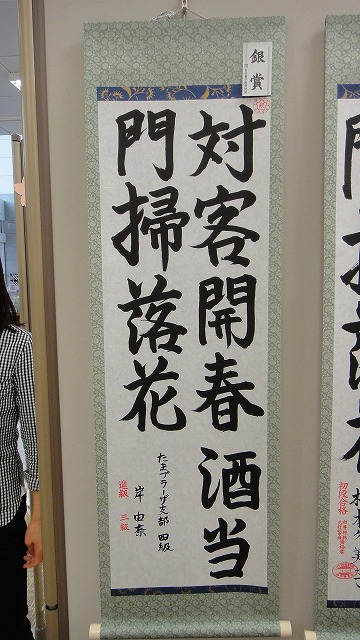 銀賞
対客開春酒当
門掃落花
たまプラーザ支部 四級
岸由奈
進級 三級
初段合格